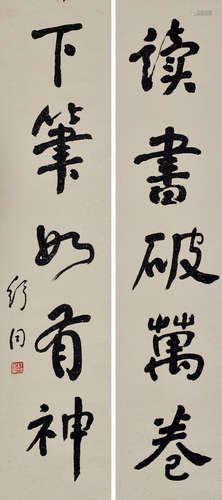 读书破萬卷
下筆如有神
舒同